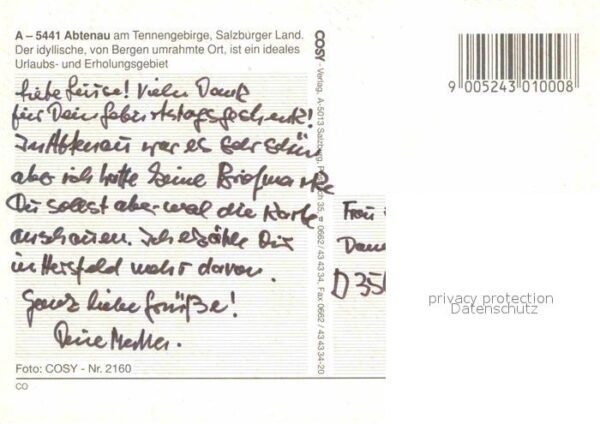 A – 5441 Abtenau am Tennengebirge, Salzburger Land.
Der idyllische, von Bergen umrahmte Ort, ist ein ideales
Urlaubs- und Erholungsgebiet
liebe Luise! Vielen Dank
für Dein Geburtstagsgeschenk!
In Abtenau war es sehr schön
aber ich hatte keine Briefmarke
Du sollst aber mal die Karte
anschauen. Ich erzähle Dir
in Hersfeld mehr davon.
Ganz liebe Grüße!
Deine
Foto: COSY - Nr. 2160
CO
COSY - Verlag, A-5013 Salzburg, 35, 0662 / 43 43 34, Fax 0662 / 43 43 34-20
9 005243 010008
Frau
D 35
privacy protection
Datenschutz